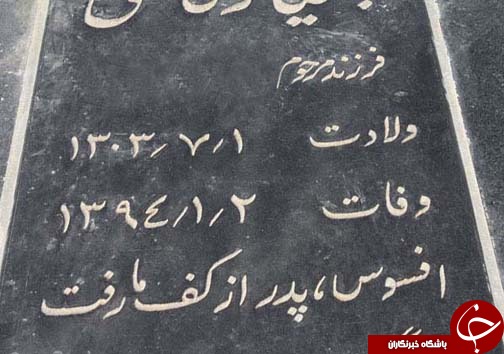 فرزند مرحوم
ولادت ۱۳۰۳/۷/۱
وفات ۱۳۹٤/۱/۲
افسوس، پدر از کف ما رفت
باشگاه خبرنگاران